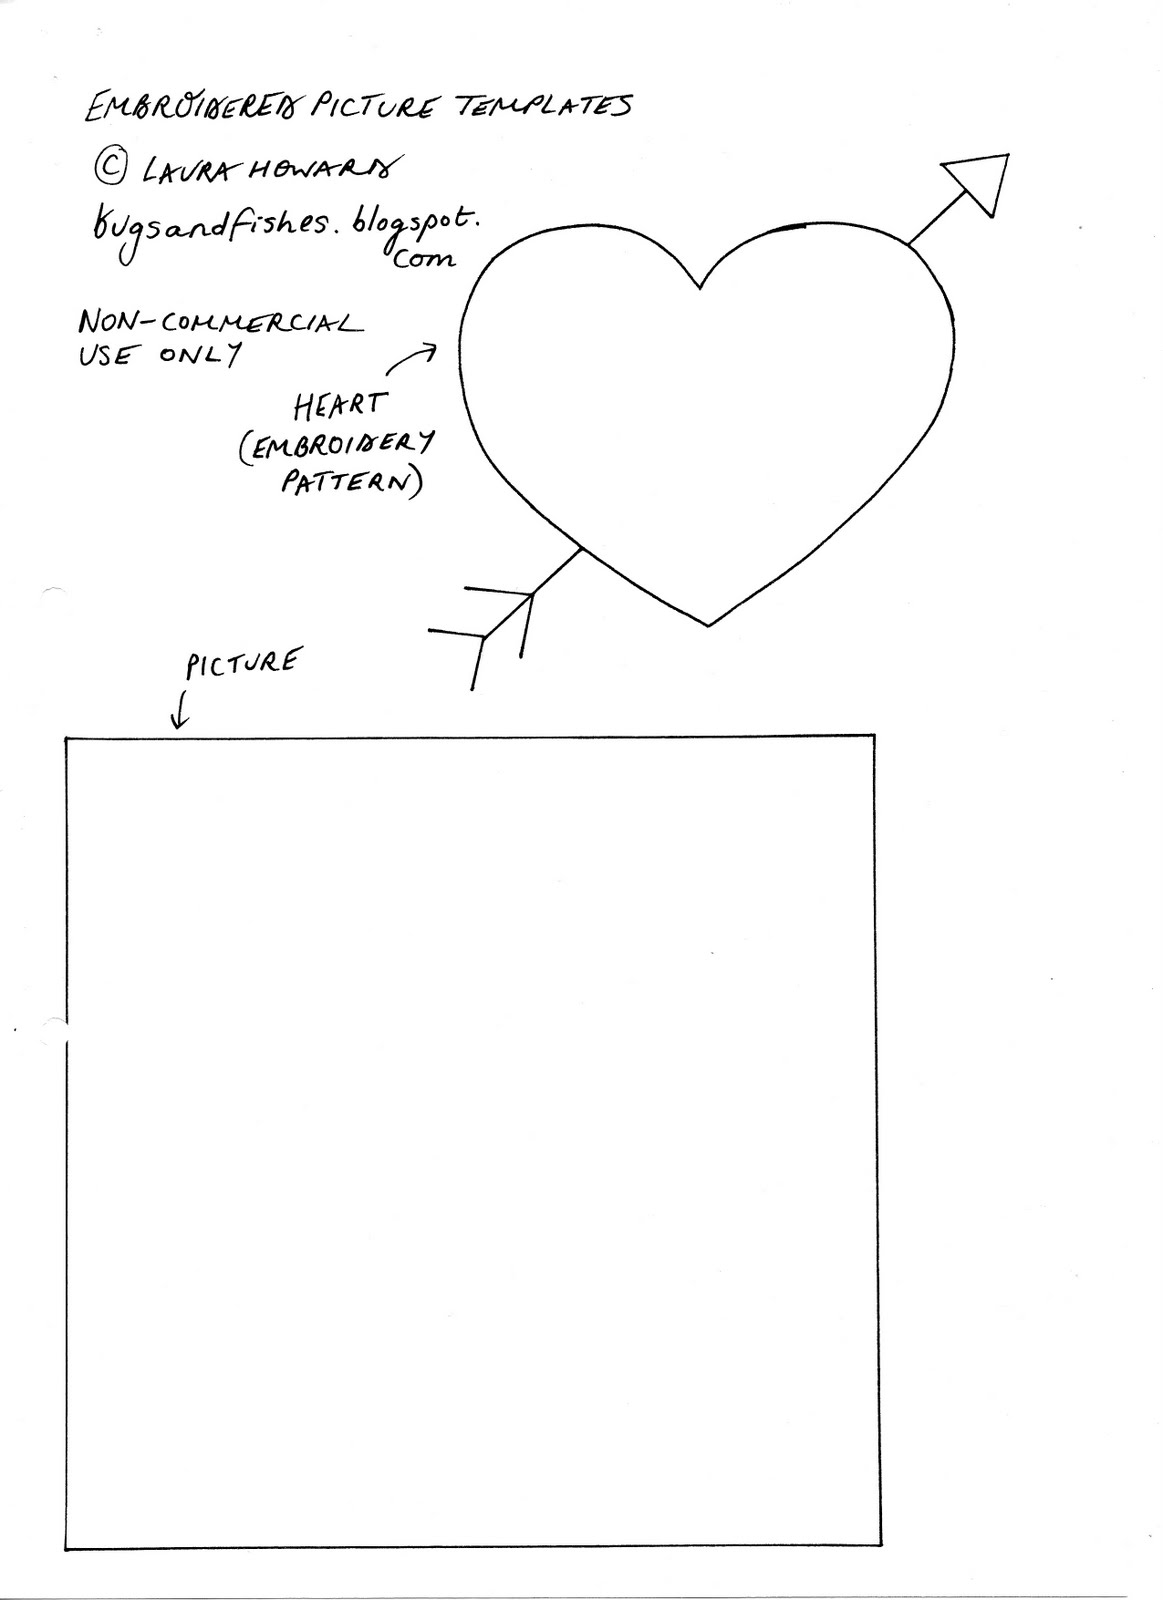 EMBROIDERED PICTURE TEMPLATES
© LAURA HOWARD
bugsandfishes.blogspot.
com
NON-COMMERCIAL
USE ONLY
HEART
(EMBROIDERY
PATTERN)
PICTURE